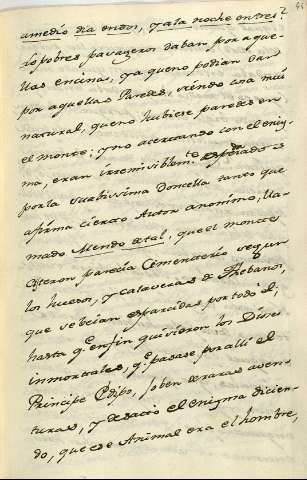 2
amedio dia en dos, y ala noche en tres?
Lo pobres pasageros daban por aque-
llas encinas, ya que no podian dar
por aquellas Paredes, siendo cosa mui
natural, que no hubiese paredes en
el monte; y no acertando con el enig-
ma, eran irremisiblemte.
por la suabissima Doncella tanto que
afirma cierto Autor anonimo, lla-
mado Mendo de tal, que el monte
Citeron parecia Cimenterio segun
los huesos, y calaveras de Thebanos,
que se beian esparcidas por todo el;
hasta q.e en fin quisieron los Dioses
inmortales, q.e pasase por alli el
Principe Edipo, Joben de raras aven-
turas, y desató el enigma dicien-
do, que ese Animal era el hombre,